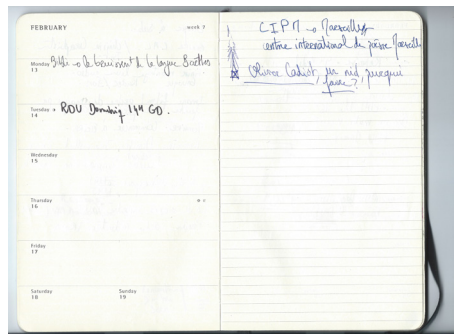 FEBRUARY week 7
Monday 13 Bibli → le bruissement de la langue Barthes
Tuesday 14 RDV 14H GD.
Wednesday 15
Thursday 16
Friday 17
Saturday 18 Sunday 19
CIPM → Marseille
centre international de poésie Marseille
Olivier Cadiot, un nid, pour quoi
faire?